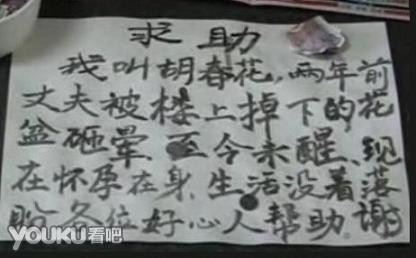 求助
我叫胡春花,两年前
丈夫被楼上掉下的花
盆砸晕、至今未醒、现
在怀孕在身、生活没着落
盼各位好心人帮助.谢
YOUKU看吧